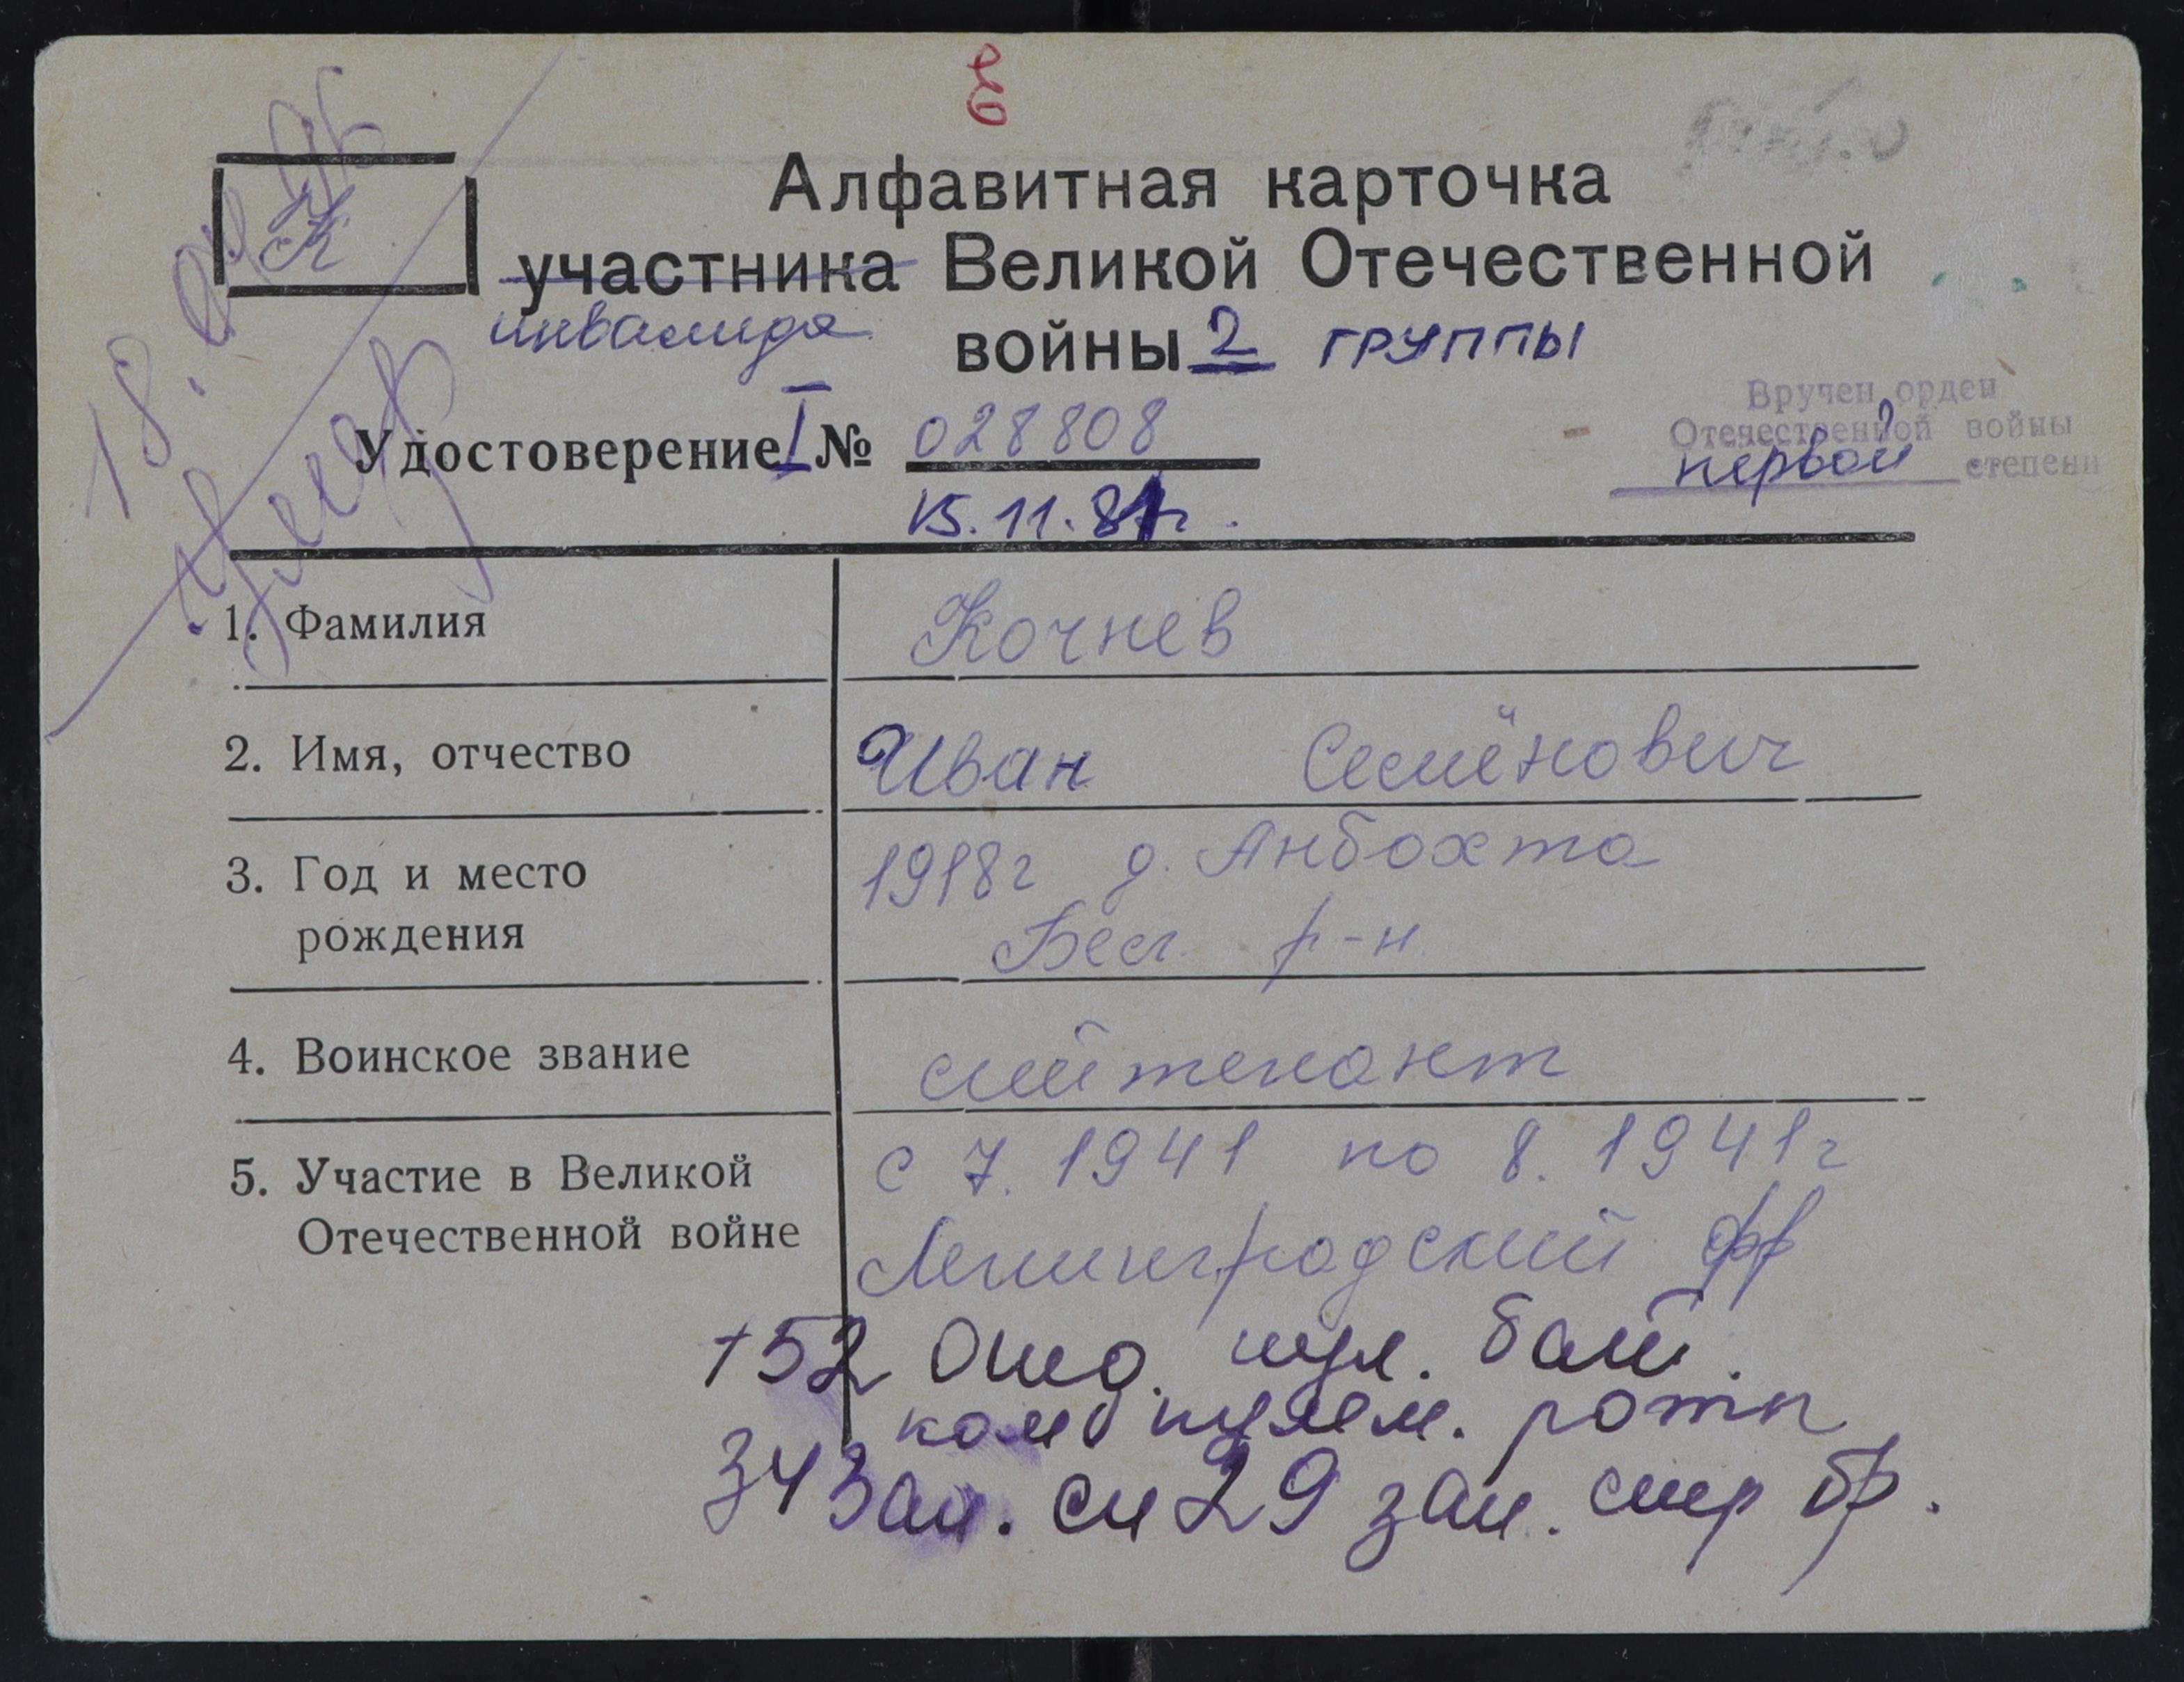 К
Алфавитная карточка
участника Великой Отечественной
инвалида
войны 2 группы
Вручен орден
Отечественной войны
первой степени
Удостоверение I № 028808
15.11.81г.
1. Фамилия
Кочнев
2. Имя, отчество
Иван Семёнович
3. Год и место
рождения
1918г д. Анбохта
Бесл. р-н
4. Воинское звание
лейтенант
5. Участие в Великой
Отечественной войне
с 7. 1941 по 8. 1941г
Ленинградский фр
152 отд. пул. бат.
ком пулем. роты
34 зап. сп 29 зап. стр бр.